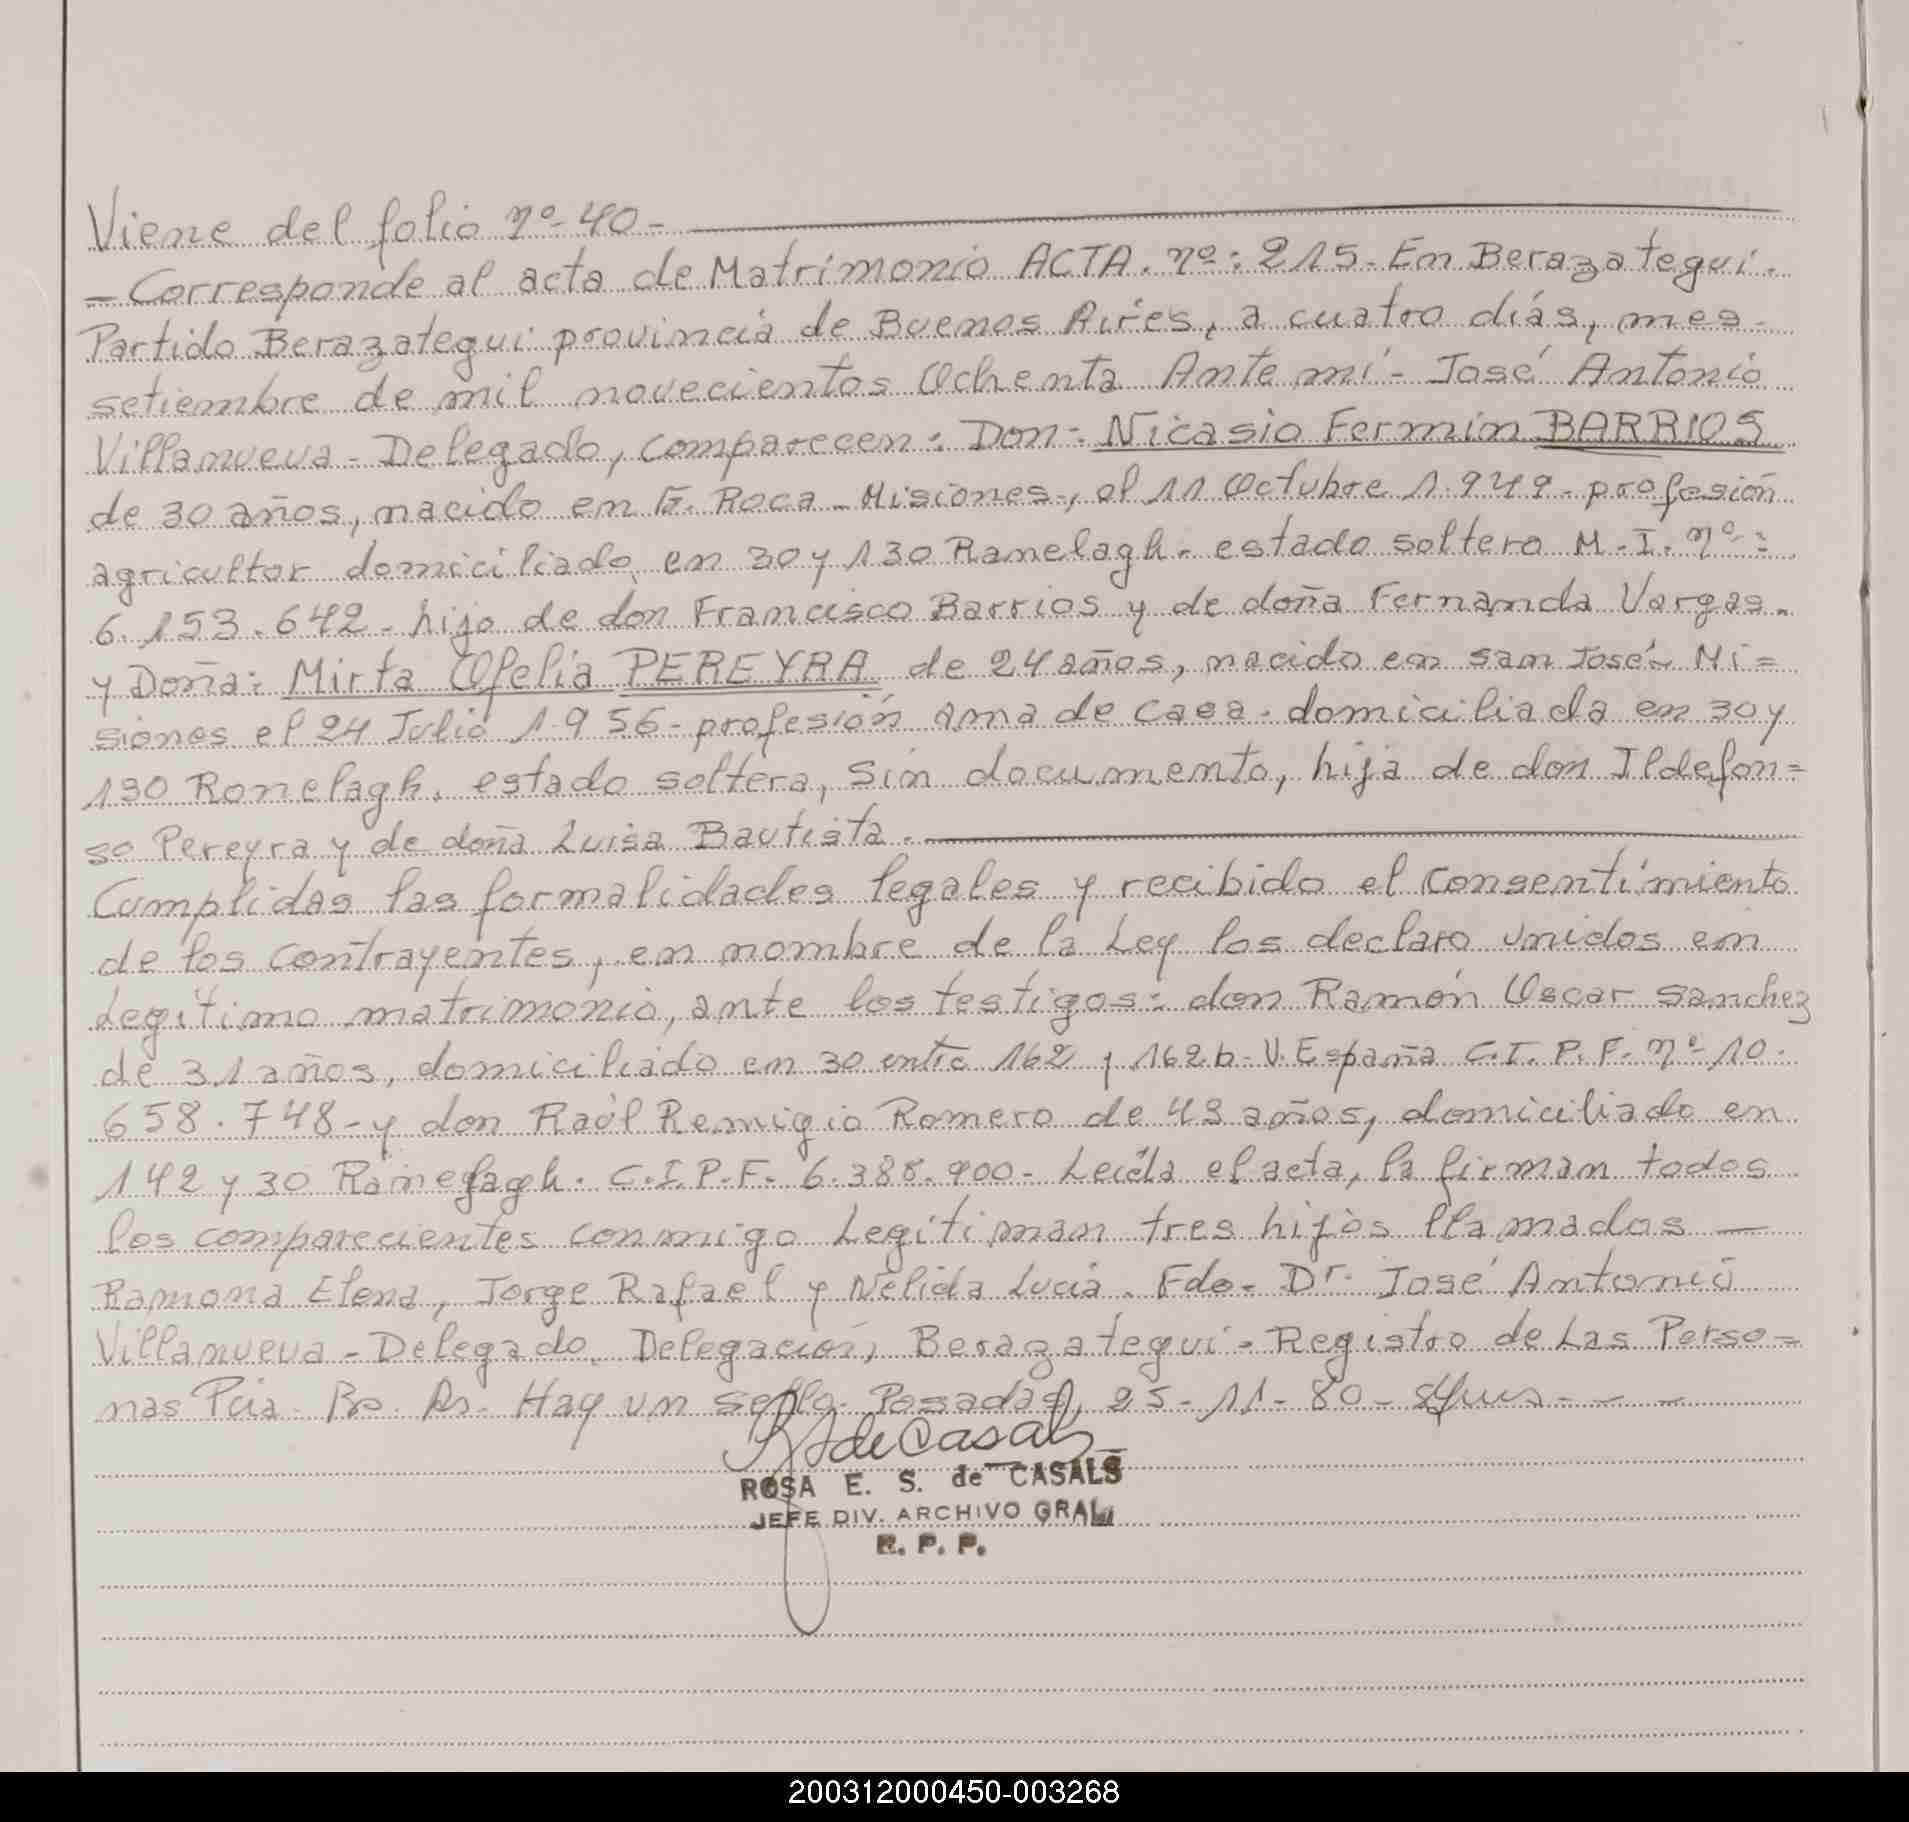 Viene del folio nº 40-
- Corresponde al acta de Matrimonio ACTA. nº: 215- En Berazategui.
Partido Berazategui provincia de Buenos Aires, a cuatro días, mes-
setiembre de mil novecientos Ochenta Ante mí- José Antonio
Villanueva - Delegado, comparecen: Don: Nicasio Fermin BARRIOS
de 30 años, nacido en G. Roca - Misiones-, el 11 Octubre 1.949- profesión
agricultor domiciliado en 30 y 130 Ranelagh- estado soltero M.I. nº:
6.153.642- hijo de don Francisco Barrios y de doña Fernanda Vargas.
y Doña: Mirta Ofelia PEREYRA de 24 años, nacido en san José- Mi=
siones el 24 Julio 1.956- profesión ama de casa- domiciliada en 30 y
130 Ranelagh. estado soltera, sin documento, hija de don Ildefon=
so Pereyra y de doña Luisa Bautista.
Cumplidas las formalidades legales y recibido el consentimiento
de los contrayentes, en nombre de la Ley los declaro unidos en
Legítimo matrimonio, ante los testigos: don Ramón Oscar Sanchez
de 31 años, domiciliado en 30 entre 162 y 162 b- V. España C.I.P.F. nº 10.
658.748- y don Raúl Remigio Romero de 43 años, domiciliado en
142 y 30 Ranelagh. C.I.P.F. 6.388.900- Leída el acta, la firman todos
los comparecientes conmigo Legitiman tres hijos llamados -
Ramona Elena, Jorge Rafael y Nelida Lucia. Fdo- Dr. José Antonio
Villanueva - Delegado. Delegación, Berazategui - Registro de Las Perso=
nas Pcia. Bs. As. Hay un sello- Posadas, 25-11-80-
R S de Casals
ROSA E. S. de CASALS
JEFE DIV. ARCHIVO GRAL
R. P. P.
200312000450-003268